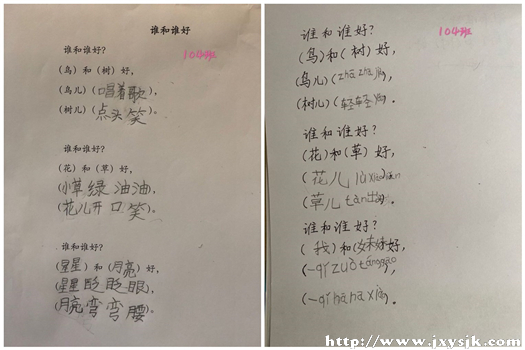 谁和谁好
谁和谁好?
104班
(鸟)和(树)好,
(鸟儿)(唱着歌),
(树儿)(点头笑)。
谁和谁好?
(花)和(草)好,
(小草绿油油,
(花儿开口笑)。
谁和谁好?
(星星)和(月亮)好,
(星星眨眨眼,
(月亮弯弯腰)。
谁和谁好?
104班
(鸟)和(树)好,
(鸟儿)(zhā zhā
(树儿)(轻轻
谁和谁好?
(花)和(草)好,
(花儿
(草儿
谁和谁好?
(我)和(妹妹好,
(一qǐ zuò
(一qǐ hā hā xiào)。
http://www.jxysjk.com